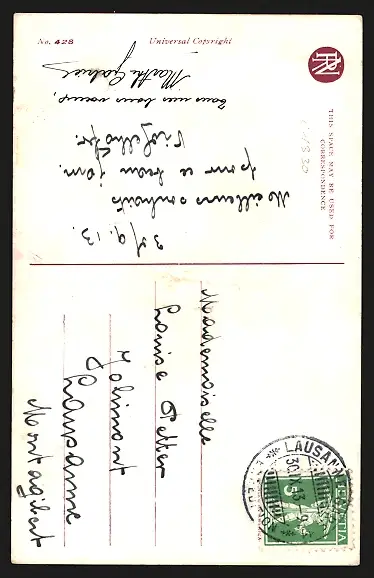 No. 428
Universal Copyright
THIS SPACE MAY BE USED FOR
CORRESPONDENCE
3 / 9. 13.
Meilleurs souhaits
pour ce beau jour.
Tous mes bons vœux,
Marthe
Mademoiselle
Louise Petter
Jolimont
Lausanne
Montagibert
LAUSANNE
30.IX.13
HELVETIA
5